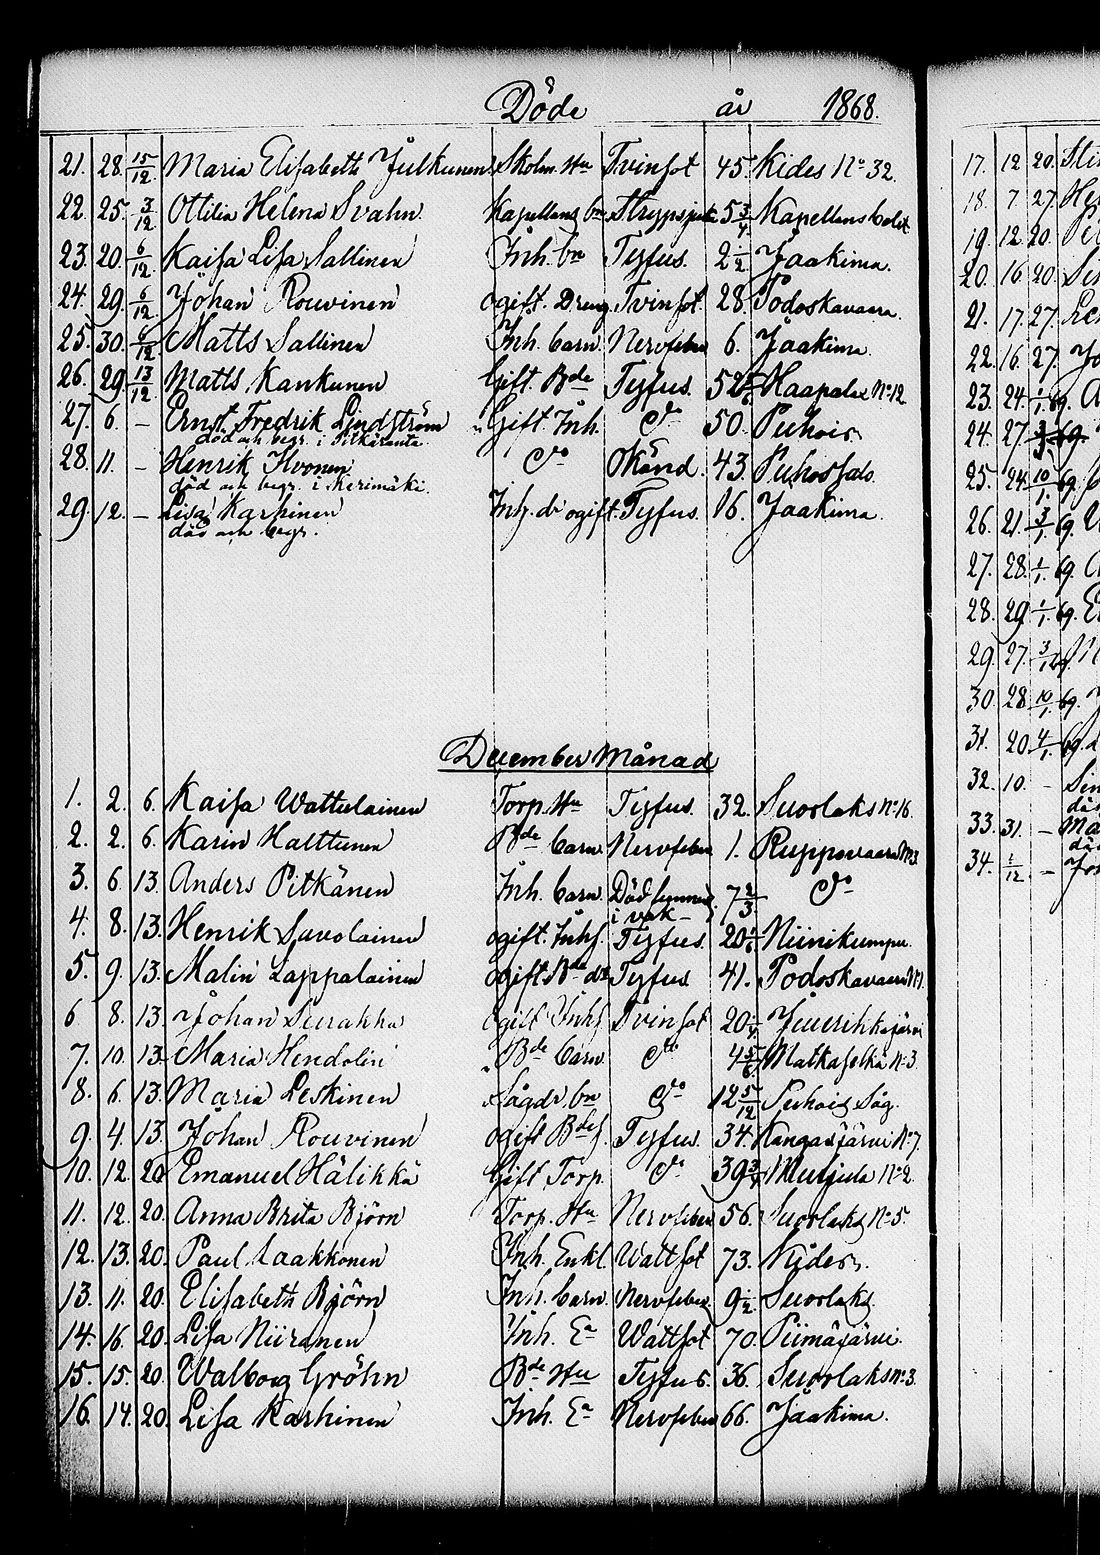 Döde år 1868.
21. 28. 15/12 Maria Elisabeth Julkunen Skolm. Hu Tvinsot 45. Kides No 32.
22. 25. 3/12 Ottilia Helena Svahn Kapellans bn Strypsjuk 5 3/4 Kapellans bolet
23. 20. 6/12 Kaisa Lisa Sallinen Inh. bn Tyfus. 2 1/2 Jaakima.
24. 29. 6/12 Johan Rouvinen ogift. Dreng Tvinsot. 28. Podoskavaara.
25. 30. 6/12 Matts Sallinen Inh. barn. Nervfeber 6. Jaakima.
26. 29. 13/12 Matts Kankunen Gift. Bde Tyfus. Haapalax No 12
27. 6. – Ernst Fredrik Lindström Gift Inh. do 50. Puhois.
död och begr. i Pitkäranta
28. 11. – Henrik Ihvonen do Okänd. 43. Puhos
död och begr. i Kerimäki.
29. 12. – Lisa Karhinen Inh. dr ogift. Tyfus. 16. Jaakima.
död och begr.
December Månad
1. 2. 6. Kaisa Wattulainen Torp. Hu Tyfus. 32. Suorlaks No 16.
2. 2. 6. Karin Halttunen Bde barn Nervfeber 1. Ruppovaara No 3.
3. 6. 13. Anders Pitkänen Inh. barn. Död funnen 7 2/3 do
i vak –
4. 8. 13. Henrik Suvolainen ogift. Inhs. Tyfus. Niinikumpu.
5. 9. 13. Malin Lappalainen ogift Bde dr Tyfus 41. Podoskavaara No 1.
6 8. 13. Johan Surakka ogift Inhs Tvinsot Juurikkajärvi
7. 10. 13. Maria Hendolin Bde barn do 4 5/6 Matkaselkä No 3.
8. 6. 13. Maria Leskinen Sågdr. bn do 12 5/12 Puhois Såg.
9. 4. 13. Johan Rouvinen ogift Bdes. Tyfus. 34. Kangasjärvi No 7.
10. 12. 20 Emanuel Hälikkä Gift Torp. do 39 3/4 Muljula No 2.
11. 12. 20. Anna Brita Björn Torp. Hu Nervfeber 56. Suorlaks No 5.
12. 13. 20. Paul Laakkonen Inh. Enkl. Wattsot 73. Kides.
13. 11. 20. Elisabeth Björn Inh. barn. Nervfeber 9 1/2 Suorlaks.
14. 16. 20. Lisa Niiranen Inh. Ea Wattsot 70. Piimäjärvi.
15. 15. 20. Walborg Gröhn Bde Hu Tyfus. 36. Suorlaks No 3.
16. 14. 20. Lisa Karhinen Inh. Ea Nervfeber 66. Jaakima.
17. 12 20.
18. 7. 27.
19. 12. 20.
20. 16. 20.
21. 17. 27.
22. 16. 27.
23. 24.
24. 27.
25. 24. 10/1. 69.
26. 21. 3/1. 69.
27. 28. 1/1. 69.
28. 29.
29. 27.
30. 28 10/1. 69.
31. 20
32. 10. –
33. 31. –
34. 1/12 –